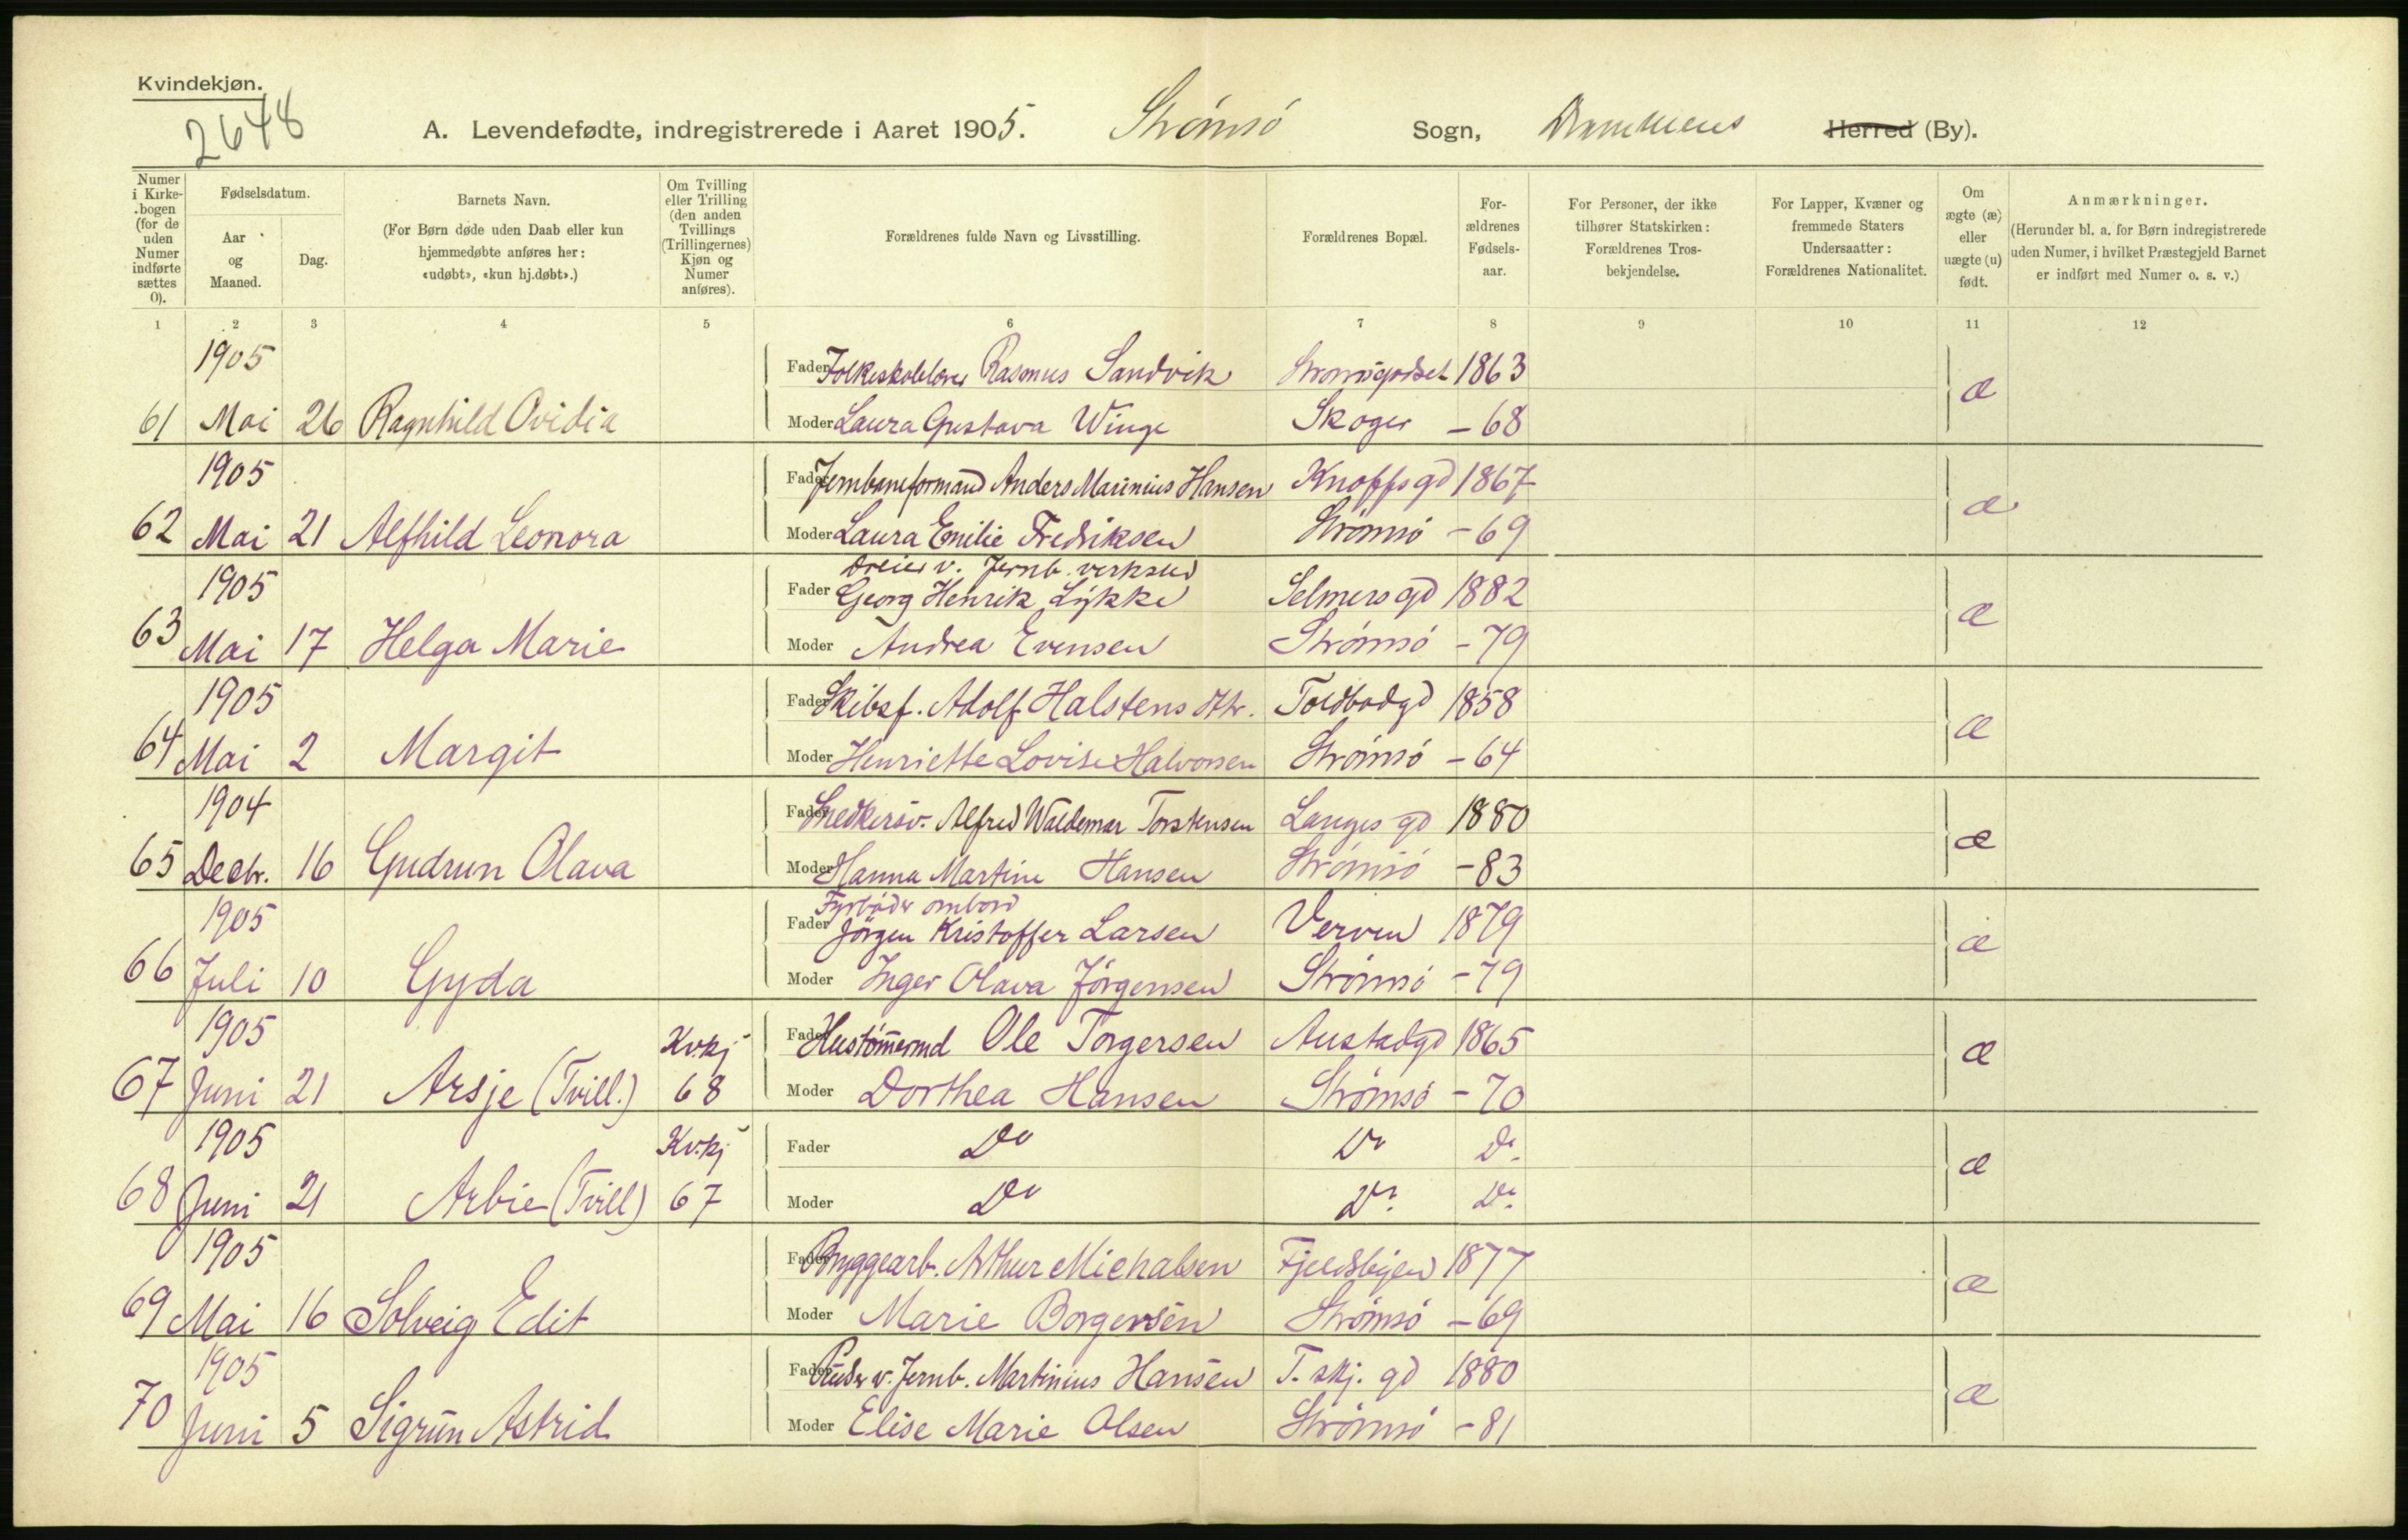 Kvindekjøn.
2648
A. Levendefødte, indregistrerede i Aaret 1905. Strømsø Sogn, Drammens Herred (By).
Numer i Kirkebogen (for de uden Numer indførte sættes 0).
Fødselsdatum.
Aar og Maaned.
Dag.
Barnets Navn.
(For Børn døde uden Daab eller kun hjemmedøbte anføres her: «udøbt», «kun hj.døbt».)
Om Tvilling eller Trilling (den anden Tvillings (Trillingernes) Kjøn og Numer anføres).
Forældrenes fulde Navn og Livsstilling.
Forældrenes Bopæl.
Forældrenes Fødselsaar.
For Personer, der ikke tilhører Statskirken: Forældrenes Trosbekjendelse.
For Lapper, Kvæner og fremmede Staters Undersaatter: Forældrenes Nationalitet.
Om ægte (æ) eller uægte (u) født.
Anmærkninger.
(Herunder bl. a. for Børn indregistrerede uden Numer, i hvilket Præstegjeld Barnet er indført med Numer o. s. v.)
1 2 3 4 5 6 7 8 9 10 11 12
1905 Fader Folkeskolelærer Rasmus Sandvik Strømsgodset 1863 æ
61 Mai 26 Ragnhild Ovidia Moder Laura Gustava Winge Skoger - 68
1905 Fader Jernbaneformand Anders Marinius Hansen Knoffs gd 1867 æ
62 Mai 21 Alfhild Leonora Moder Laura Emilie Fredriksen Strømsø - 69
Dreier v. Jernb. verksted
1905 Fader Georg Henrik Lykke Selmers gd 1882 æ
63 Mai 17 Helga Marie Moder Andrea Evensen Strømsø - 79
1905 Fader Skibsf. Adolf Halstens Toldbodgd 1858 æ
64 Mai 2 Margit Moder Henriette Lovise Halvorsen Strømsø - 64
1904 Fader Snedkersv. Alfred Waldemar Torstensen Langes gd 1880 æ
65 Decbr. 16 Gudrun Olava Moder Hanna Martine Hansen Strømsø - 83
Fyrbøder ombord
1905 Fader Jörgen Kristoffer Larsen Verven 1879 æ
66 Juli 10 Gyda Moder Inger Olava Jörgensen Strømsø - 79
1905 Kv.kj Fader Hustømermd Ole Torgersen Austadgd 1865 æ
67 Juni 21 Arsje (Tvill.) 68 Moder Dorthea Hansen Strømsø - 70
1905 Kv.kj Fader Do Do Do. æ
68 Juni 21 Arbie (Tvill) 67 Moder Do Do. Do.
1905 Fader Bryggearb. Arthur Michalsen Fjeldbyen 1877 æ
69 Mai 16 Solveig Edit Moder Marie Borgersen Strømsø - 69
1905 Fader Pudser v. Jernb. Martinius Hansen T. skj. gd 1880 æ
70 Juni 5 Sigrun Astrid Moder Elise Marie Olsen Strømsø - 81